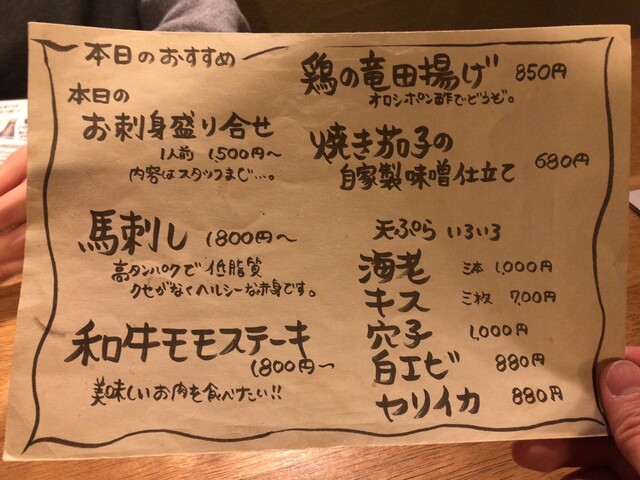 本日のおすすめ
本日の
お刺身盛り合せ
1人前 1,500円〜
内容はスタッフまじ…。
馬刺し 1800円〜
高タンパクで低脂質
クセがなくヘルシーな赤身です。
和牛モモステーキ
1,800円〜
美味しいお肉を食べたい!!
鶏の竜田揚げ 850円
オロシポン酢でどうぞ。
焼き茄子の
自家製味噌仕立て 680円
天ぷら いろいろ
海老 三本 1,000円
キス 三枚 700円
穴子 1,000円
白エビ 880円
ヤリイカ 880円